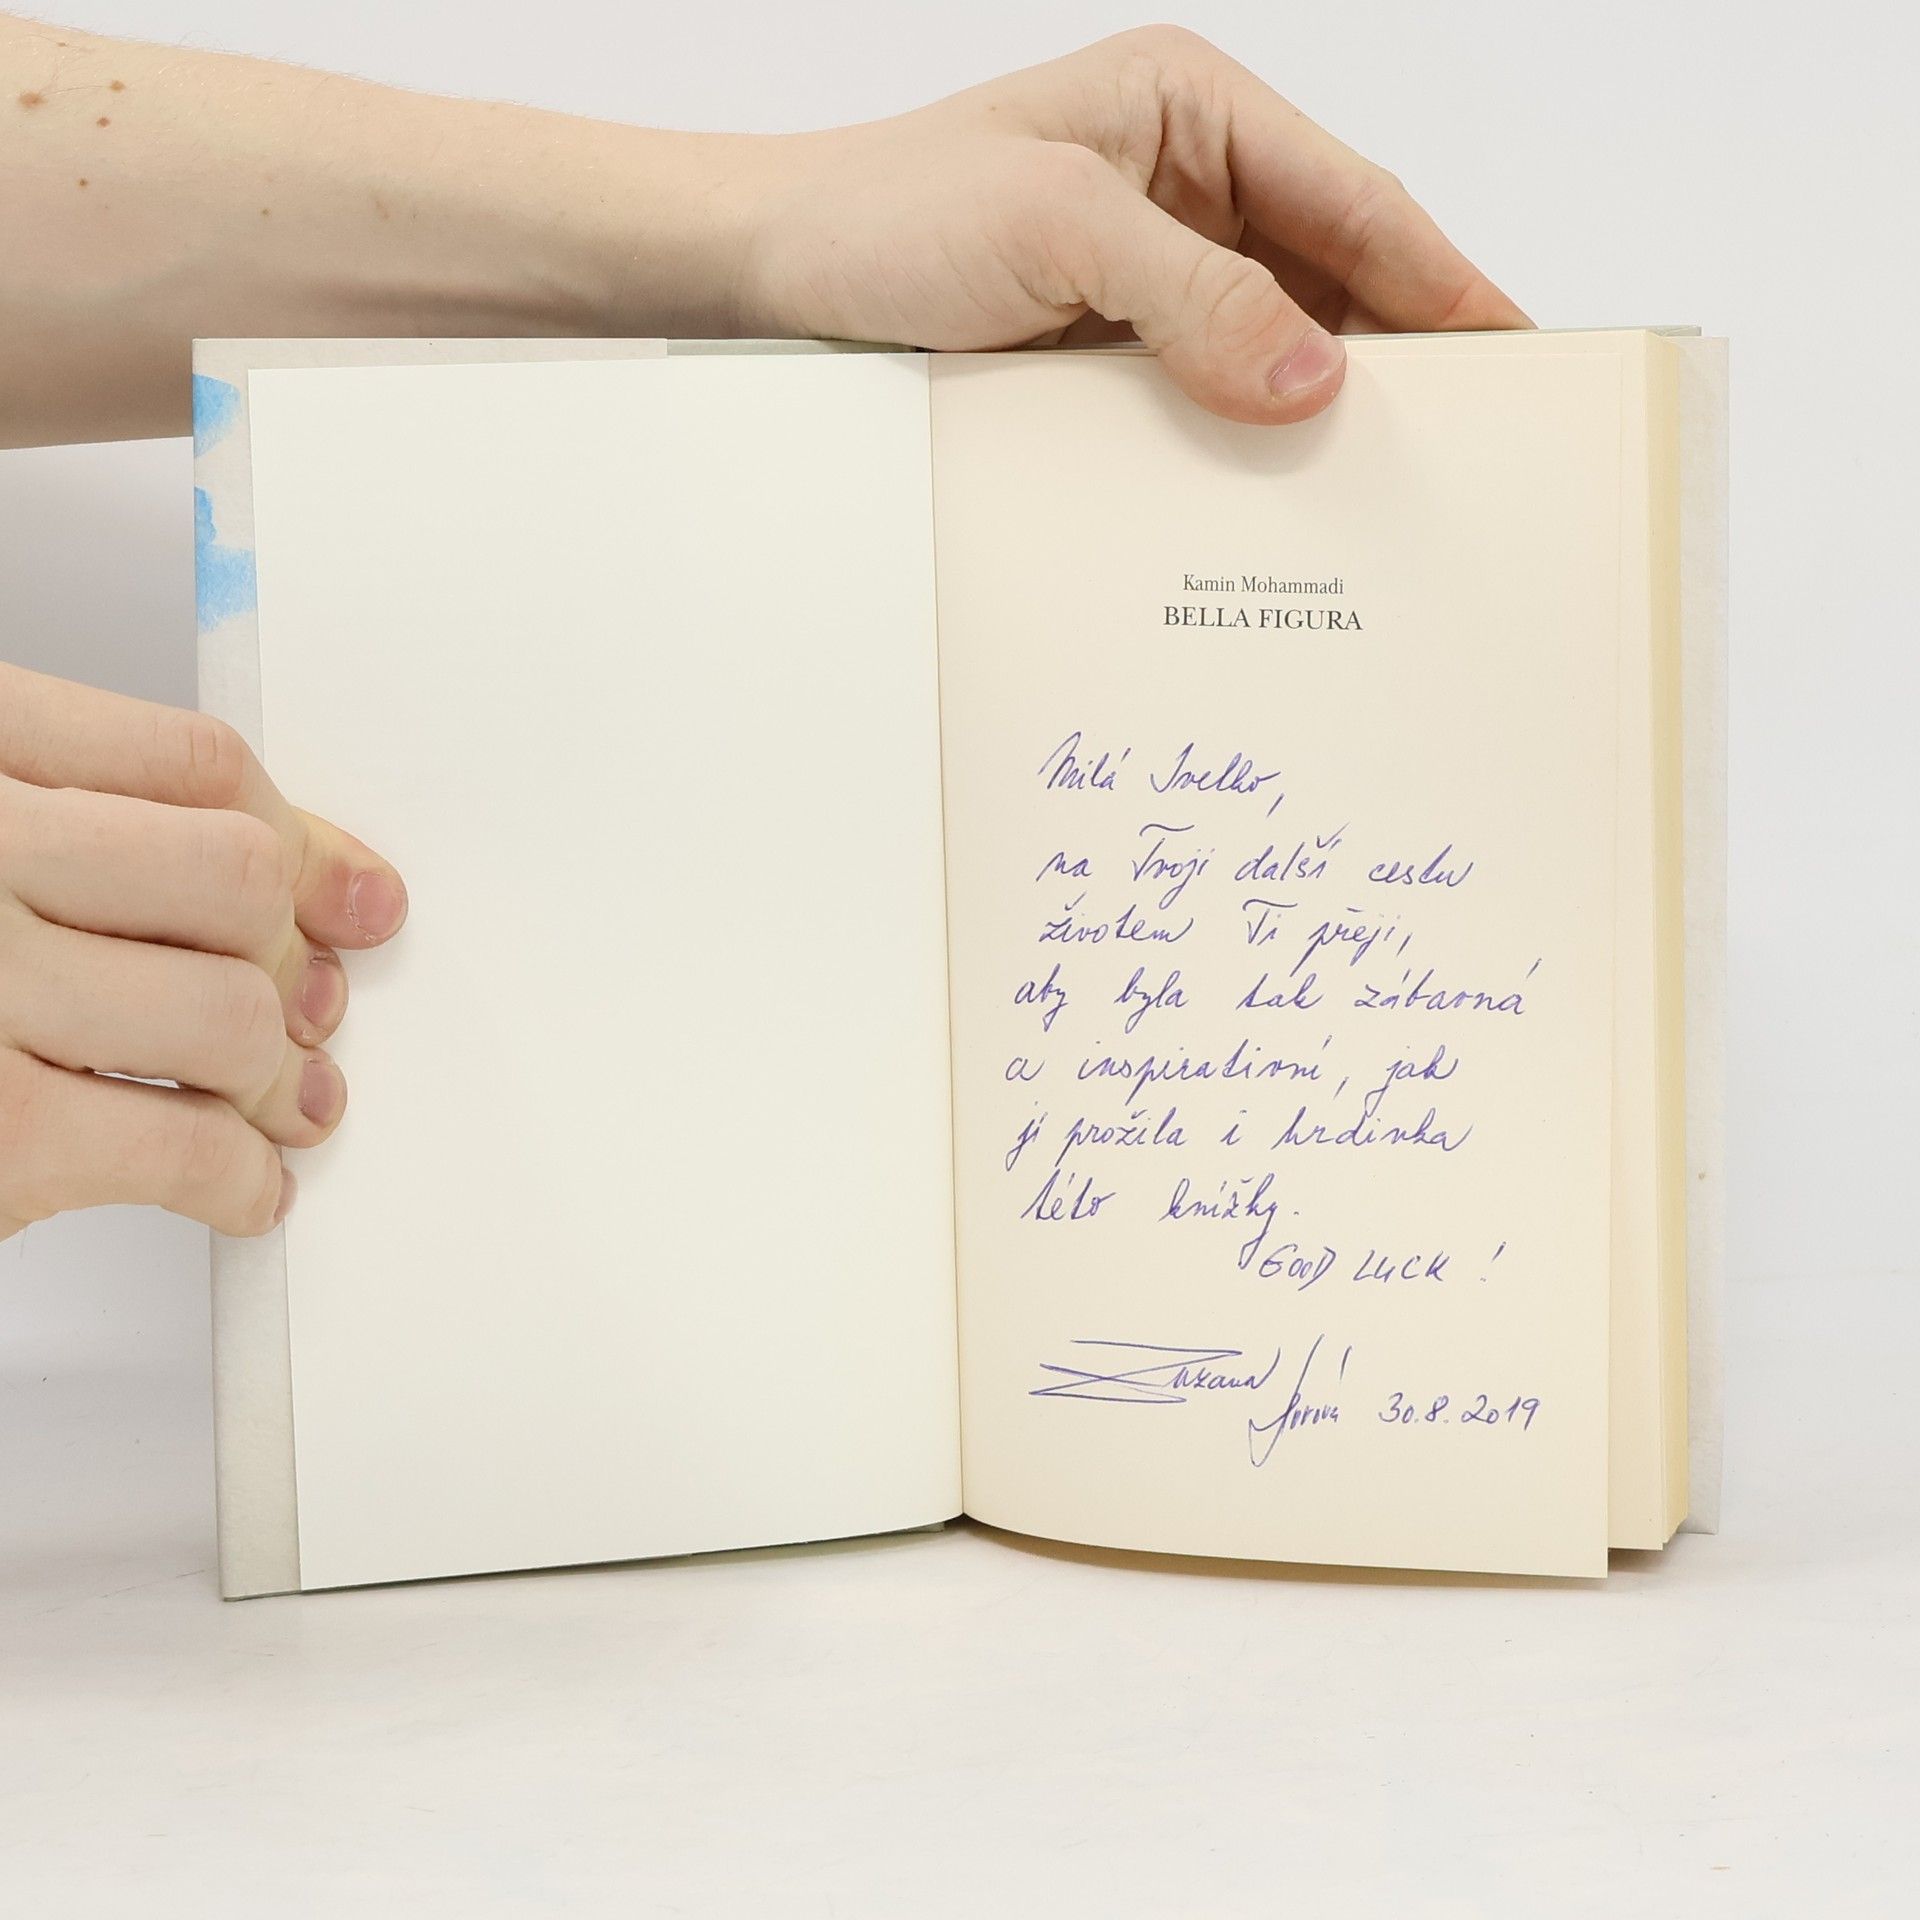 Kamin Mohammadi
BELLA FIGURA
Milá Ivelko,
na Tvoji další cestu
životem Ti přeji,
aby byla tak zábavná
a inspirativní, jak
ji prožila i hrdinka
této knížky.
GOOD LUCK !
Zuzana
30.8.2019